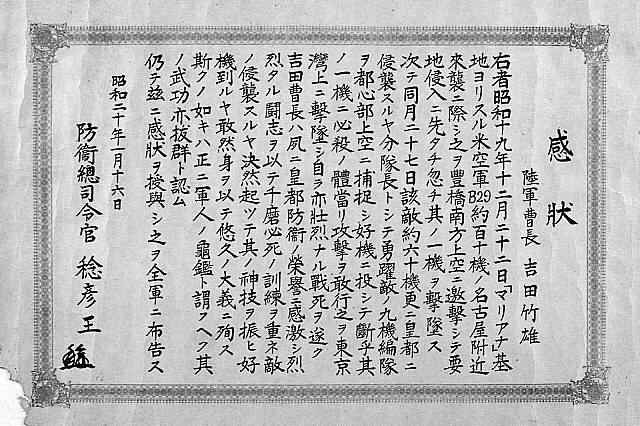 感狀
陸軍曹長 吉田竹雄
右者昭和十九年十二月二十二日「マリアナ」基
地ヨリスル米空軍B29約百十機ノ名古屋附近
來襲ニ際シ之ヲ豐橋南方上空ニ邀擊シテ要
地侵入ニ先タチ忽チ其ノ一機ヲ擊墜ス
次テ同月二十七日該敵約六十機更ニ皇都ニ
侵襲スルヤ分隊長トシテ勇躍敵ノ九機編隊
ヲ都心部上空ニ捕捉シ好機ニ投シテ斷乎其
ノ一機ニ必殺ノ體當リ攻擊ヲ敢行之ヲ東京
灣上ニ擊墜シ自ラ亦壯烈ナル戰死ヲ遂ク
吉田曹長ハ夙ニ皇都防衞ノ榮譽ニ感激シ烈
烈タル鬪志ヲ以テ千磨必死ノ訓練ヲ重ネ敵
ノ侵襲スルヤ決然起ツテ其ノ神技ヲ振ヒ好
機到ルヤ敢然身ヲ以テ悠久ノ大義ニ殉ス
斯クノ如キハ正ニ軍人ノ龜鑑ト謂フヘク其
ノ武功亦拔群ト認ム
仍テ玆ニ感狀ヲ授與シ之ヲ全軍ニ布告ス
昭和二十年一月十六日
防衞總司令官 稔彥王